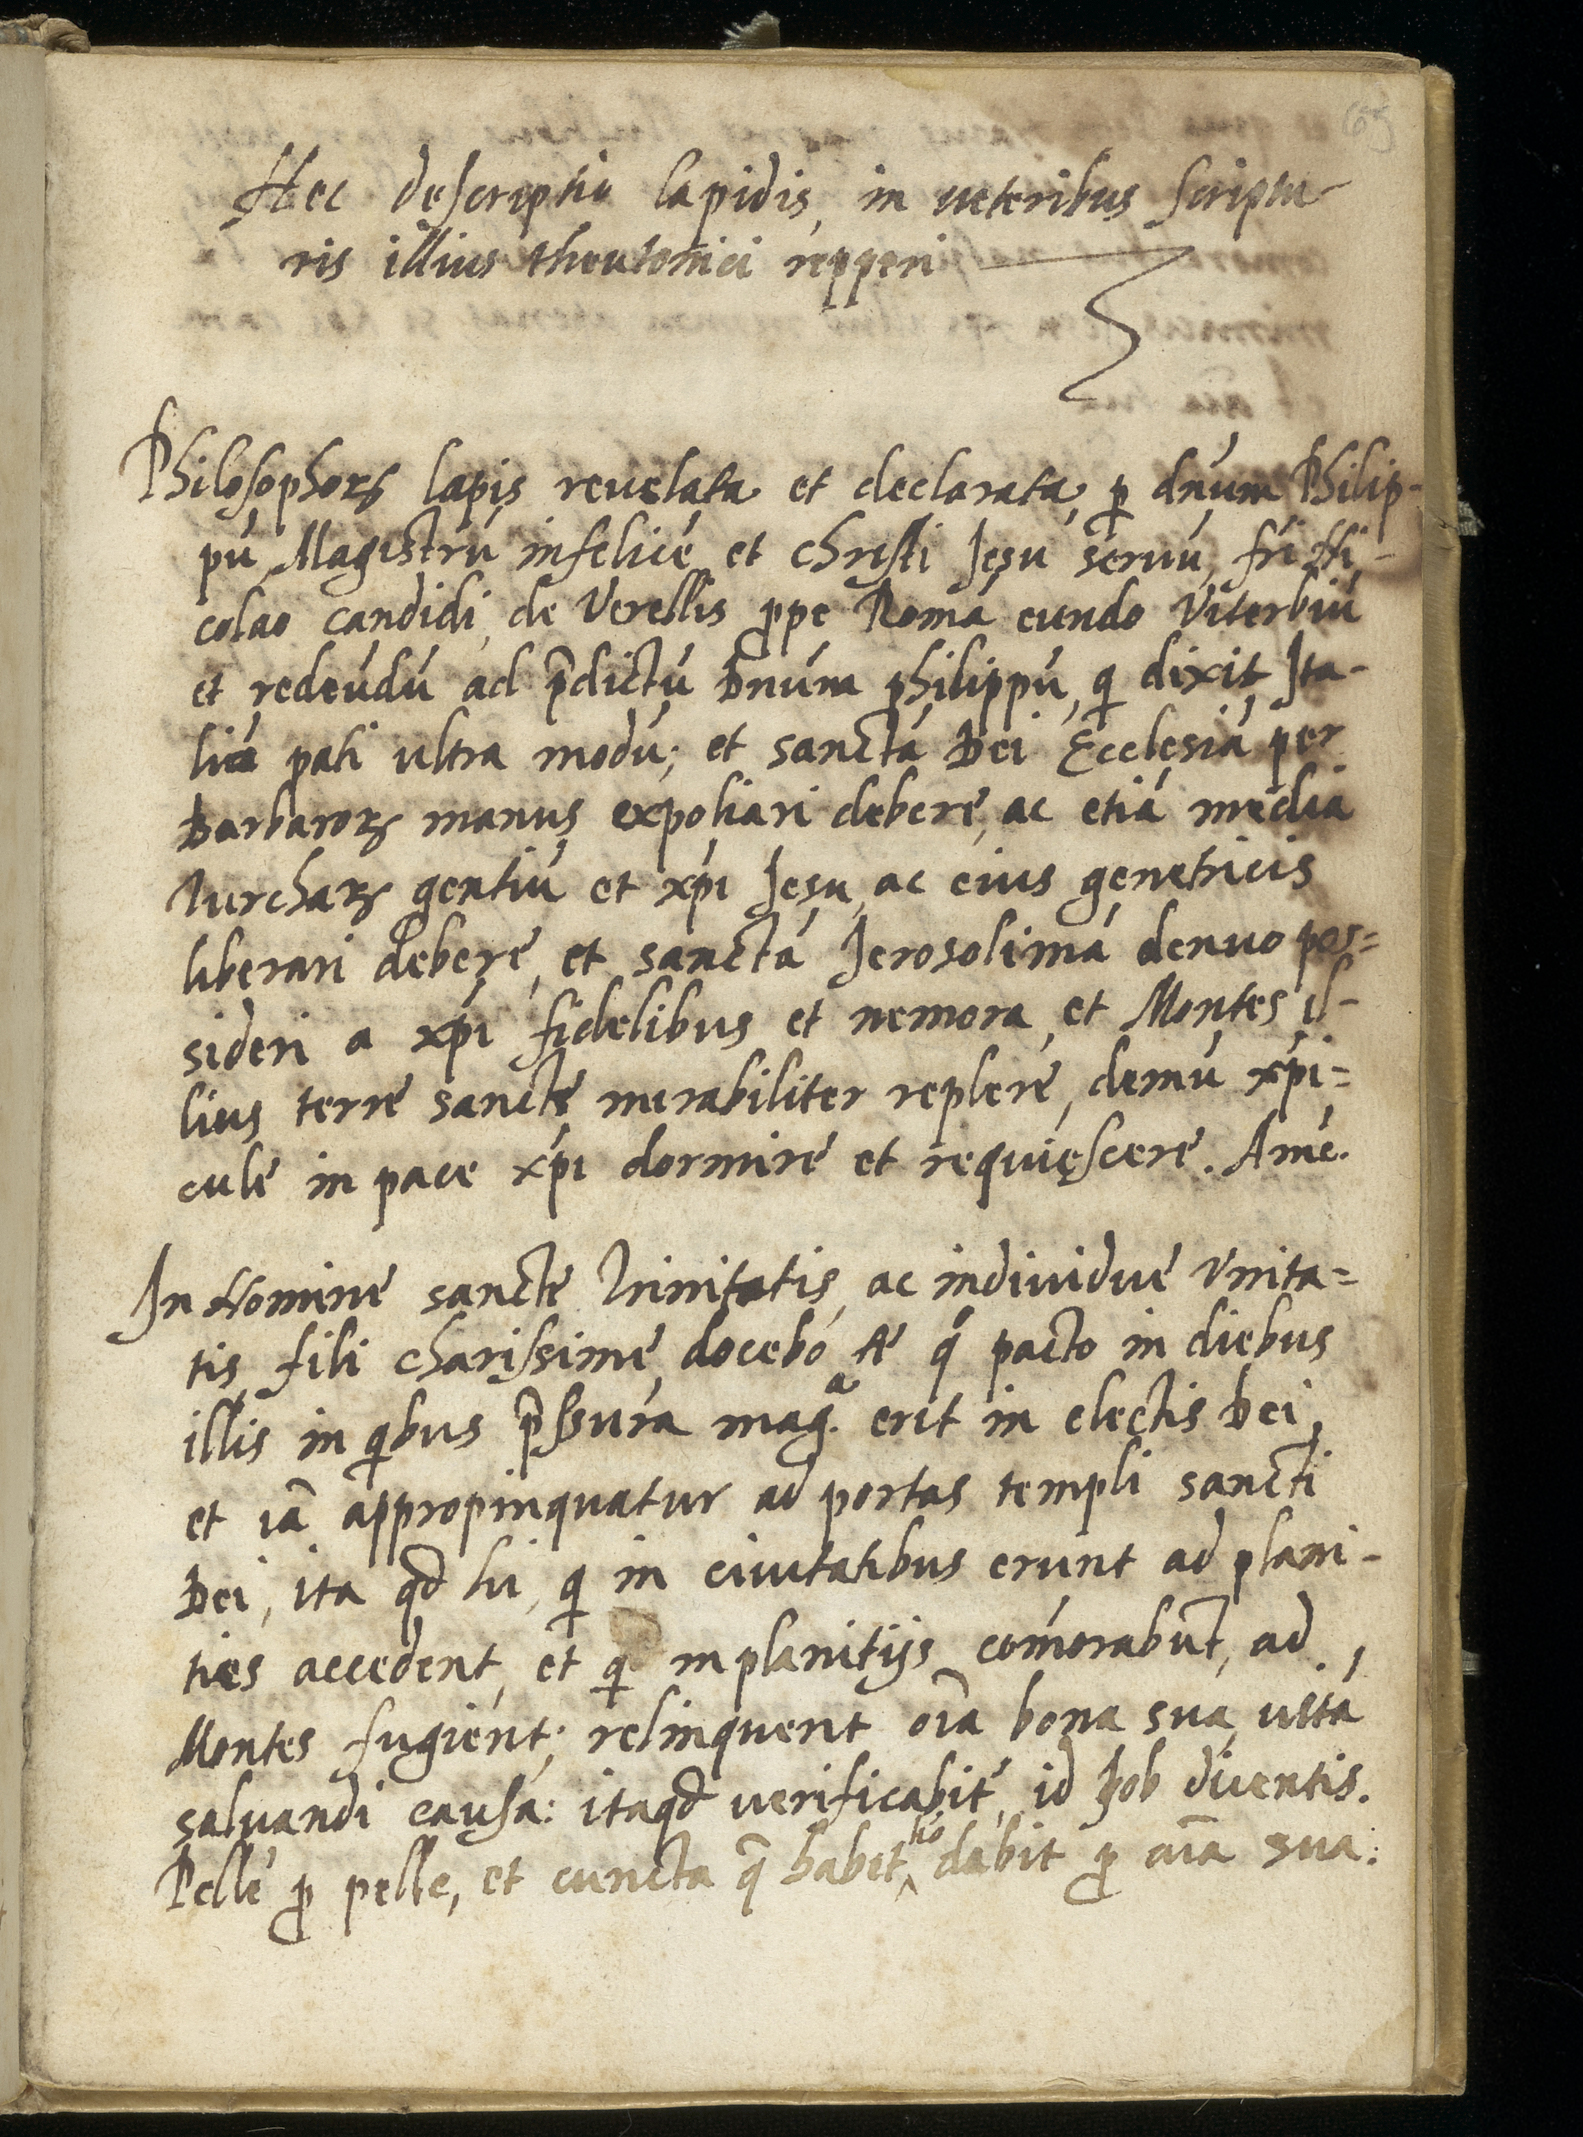 65
Hec descriptio lapidis, in ueteribus scriptu-
ris illius theutonici repperi
Philosophoꝝ lapis reuelata et declarata, ꝑ dn̄um Philip-
pū Magistrū infelicē et christi Jesu seruū, fr̄i Ni-
colao candidi, de Verellis ꝓpe Romā eundo Viterbiū
et redeūdū ad p̄dictū Dnūm philippū, qͥ dixit Ita-
liā pati ultra modū; et sanctā Dei Ecclesiā per
Barbaroꝝ manus expoliari debere, ac etiā media
Turchaꝝ gentiū et xp̄i Jesu, ac eius genetricis
liberari debere, et sanctā Jerosolimā denuo pos=
sideri a xp̄i fidelibus et nemora, et Montes il-
lius terre sancte mirabiliter replere, demū xp̄i=
cule in pace xp̄i dormire et requiescere. Amē.
In Nomine sancte Trinitatis, ac indiuidue Vnita=
tis, fili charissime, docebo te qͦ pacto in diebus
illis in qͥbus p̄ssura mag.ᵃ erit in electis Dei,
et iā appropinquatur ad portas templi sancti
Dei, ita qd̄ hi, qͥ in ciuitatibus erunt ad plani-
ties accedent, et qͥ in planitijs com̄orabūt, ad
Montes fugient; relinquent oīa bona sua, uitā
saluandi causa: itaqd̄ uerificabit̄, id Job dicentis.
Pellē ꝓ pelle, et cuncta q̄ habet hō dabit ꝓ aīa sua: